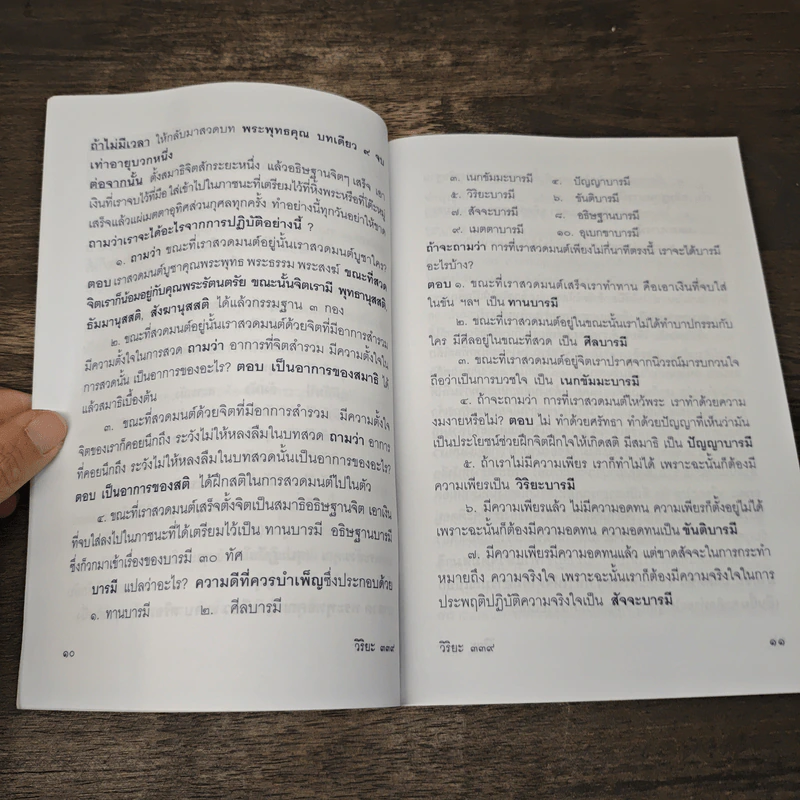 ถ้าไม่มีเวลา ให้กลับมาสวดบท พระพุทธคุณ บทเดียว ๙ จบ
เท่าอายุบวกหนึ่ง
ต่อจากนั้น ตั้งสมาธิจิตสักระยะหนึ่ง แล้วอธิษฐานจิตๆ เสร็จ เอา
เงินที่เราจบไว้ที่มือ ใส่เข้าไปในภาชนะที่เตรียมไว้ที่หิ้งพระหรือที่โต๊ะหมู่
เสร็จแล้วแผ่เมตตาอุทิศส่วนกุศลทุกครั้ง ทำอย่างนี้ทุกวันอย่าให้ขาด
ถามว่าเราจะได้อะไรจากการปฏิบัติอย่างนี้ ?
๑. ถามว่า ขณะที่สวดมนต์อยู่นั้นเราสวดมนต์บูชาใคร?
ตอบ เราสวดมนต์บูชาคุณพระพุทธ พระธรรม พระสงฆ์ ขณะที่สวด
จิตเราก็น้อมอยู่กับคุณพระรัตนตรัย ขณะนั้นจิตเรามี พุทธานุสสติ,
ธัมมานุสสติ, สังฆานุสสติ ได้แล้วกรรมฐาน ๓ กอง
๒. ขณะที่สวดมนต์อยู่นั้นเราสวดมนต์ด้วยจิตที่มีอาการสำรวม
มีความตั้งใจในการสวด ถามว่า อาการที่จิตสำรวม มีความตั้งใจใน
การสวดนั้น เป็นอาการของอะไร? ตอบ เป็นอาการของสมาธิ ได้
แล้วสมาธิเบื้องต้น
๓. ขณะที่สวดมนต์ด้วยจิตที่มีอาการสำรวม มีความตั้งใจ
จิตของเราก็คอยนึกถึง ระวังไม่ให้หลงลืมในบทสวด ถามว่า อาการ
ที่คอยนึกถึง ระวังไม่ให้หลงลืมในบทสวดนั้นเป็นอาการของอะไร?
ตอบ เป็นอาการของสติ ได้ฝึกสติในการสวดมนต์ไปในตัว
๔. ขณะที่เราสวดมนต์เสร็จตั้งจิตเป็นสมาธิอธิษฐานจิต เอาเงิน
ที่จบใส่ลงไปในภาชนะที่ได้เตรียมไว้เป็น ทานบารมี อธิษฐานบารมี
ซึ่งก็วกมาเข้าเรื่องของบารมี ๓๐ ทัศ
บารมี แปลว่าอะไร? ความดีที่ควรบำเพ็ญซึ่งประกอบด้วย
๑. ทานบารมี ๒. ศีลบารมี
๑๐ วิริยะ ๓๓๙
๓. เนกขัมมะบารมี ๔. ปัญญาบารมี
๕. วิริยะบารมี ๖. ขันติบารมี
๗. สัจจะบารมี ๘. อธิษฐานบารมี
๙. เมตตาบารมี ๑๐. อุเบกขาบารมี
ถ้าจะถามว่า การที่เราสวดมนต์เพียงไม่กี่นาทีตรงนี้ เราจะได้บารมี
อะไรบ้าง?
ตอบ ๑. ขณะที่เราสวดมนต์เสร็จเราทำทาน คือเอาเงินที่จบใส่
ในขัน ฯลฯ เป็น ทานบารมี
๒. ขณะที่เราสวดมนต์อยู่ในขณะนั้นเราไม่ได้ทำบาปกรรมกับ
ใคร มีศีลอยู่ในขณะที่สวด เป็น ศีลบารมี
๓. ขณะที่เราสวดมนต์อยู่จิตเราปราศจากนิวรณ์มารบกวนใจ
ถือว่าเป็นการบวชใจ เป็น เนกขัมมะบารมี
๔. ถ้าจะถามว่า การที่เราสวดมนต์ไหว้พระ เราทำด้วยความ
งมงายหรือไม่? ตอบ ไม่ ทำด้วยศรัทธา ทำด้วยปัญญาที่เห็นว่ามัน
เป็นประโยชน์ช่วยฝึกจิตฝึกใจให้เกิดสติ มีสมาธิ เป็น ปัญญาบารมี
๕. ถ้าเราไม่มีความเพียร เราก็ทำไม่ได้ เพราะฉะนั้นก็ต้องมี
ความเพียรเป็น วิริยะบารมี
๖. มีความเพียรแล้ว ไม่มีความอดทน ความเพียรก็ตั้งอยู่ไม่ได้
เพราะฉะนั้นก็ต้องมีความอดทน ความอดทนเป็น ขันติบารมี
๗. มีความเพียรมีความอดทนแล้ว แต่ขาดสัจจะในการกระทำ
หมายถึง ความจริงใจ เพราะฉะนั้นเราก็ต้องมีความจริงใจในการ
ประพฤติปฏิบัติความจริงใจเป็น สัจจะบารมี
วิริยะ ๓๓๙ ๑๑